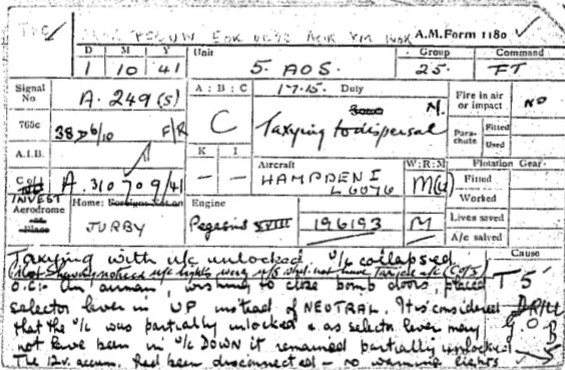 A.M. Form 1180
D M Y Unit Group Command
1 10 41 5. AOS. 25. FT
Signal No. A. 249 (S) A : B : C 17.15. Duty Fire in air or impact NO
765c 38 D 6/10 F/R C Taxying to dispersal M. Parachute Fitted
Used
A.I.B. K I Aircraft W:R:M Flotation Gear
A. 310709/41 — — HAMPDEN I L6076 Fitted
INVEST Worked
Aerodrome Home: Engine Lives saved
JURBY Pegasus XVIII 196193 M A/c salved
Taxying with u/c unlocked u/c collapsed Cause
T 5
O.C:- An airman, wishing to close bomb doors, placed
selector lever in UP instead of NEUTRAL. It is considered
that the u/c was partially unlocked & as selector lever may G O B
not have been in u/c DOWN it remained partially unlocked. 5
The 12v. accum. had been disconnected — no warning lights